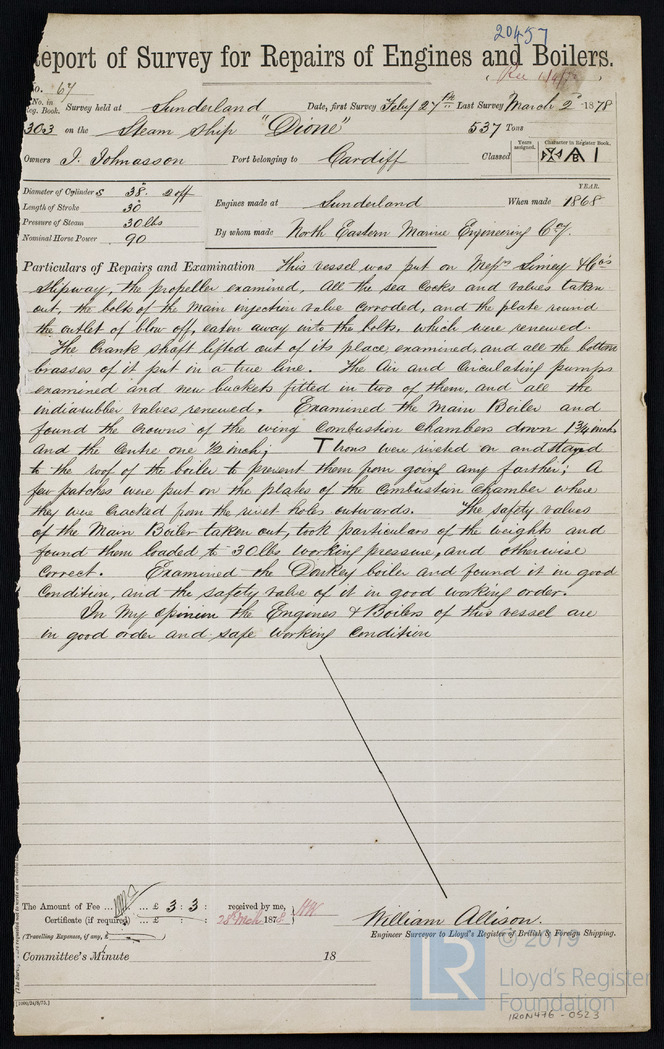 20457
Report of Survey for Repairs of Engines and Boilers.
No. 67
No. in Reg. Book. Survey held at Sunderland Date, first Survey Feby 27th Last Survey March 2d 1878
303 on the Steam Ship "Dione" 537 Tons
Owners J. Johnasson Port belonging to Cardiff Classed Years assigned. Character in Register Book. A 1
Diameter of Cylinders 38" 2 off
Length of Stroke 30"
Pressure of Steam 30 lbs
Nominal Horse Power 90
Engines made at Sunderland When made YEAR. 1868
By whom made North Eastern Marine Engineering Coy.
Particulars of Repairs and Examination This vessel was put on Messrs Simey & Co's
Slipway, the propeller examined, all the sea cocks and valves taken
out, the bolts of the main injection valve corroded, and the plate round
the outlet of blow off, eaten away into the bolts, which were renewed.
The Crank shaft lifted out of its place, examined, and all the bottom
brasses of it put in a true line. The Air and Circulating pumps
examined and new buckets fitted in two of them, and all the
indiarubber valves renewed. Examined the Main Boiler and
found the Crowns of the wing Combustion Chambers down 1 3/4 inch
and the Centre one 1/2 inch; T Irons were riveted on and stayed
to the roof of the boiler to prevent them from going any farther; A
few patches were put on the plates of the Combustion Chamber where
they were cracked from the rivet holes outwards. The safety valves
of the Main Boiler taken out, took particulars of the weights and
found them loaded to 30 lbs working pressure, and otherwise
correct. Examined the Donkey boiler and found it in good
Condition, and the safety valve of it in good working order.
In my opinion the Engines & Boilers of this vessel are
in good order and safe working condition
The Amount of Fee ... £ 3 : 3 : received by me,
Certificate (if required) £ : : 28th Mch 1878
(Travelling Expenses, if any, £ )
William Allison.
Engineer Surveyor to Lloyd's Register of British & Foreign Shipping.
Committee's Minute 18
© 2019
LR Lloyd's Register
Foundation
IRON476-0523